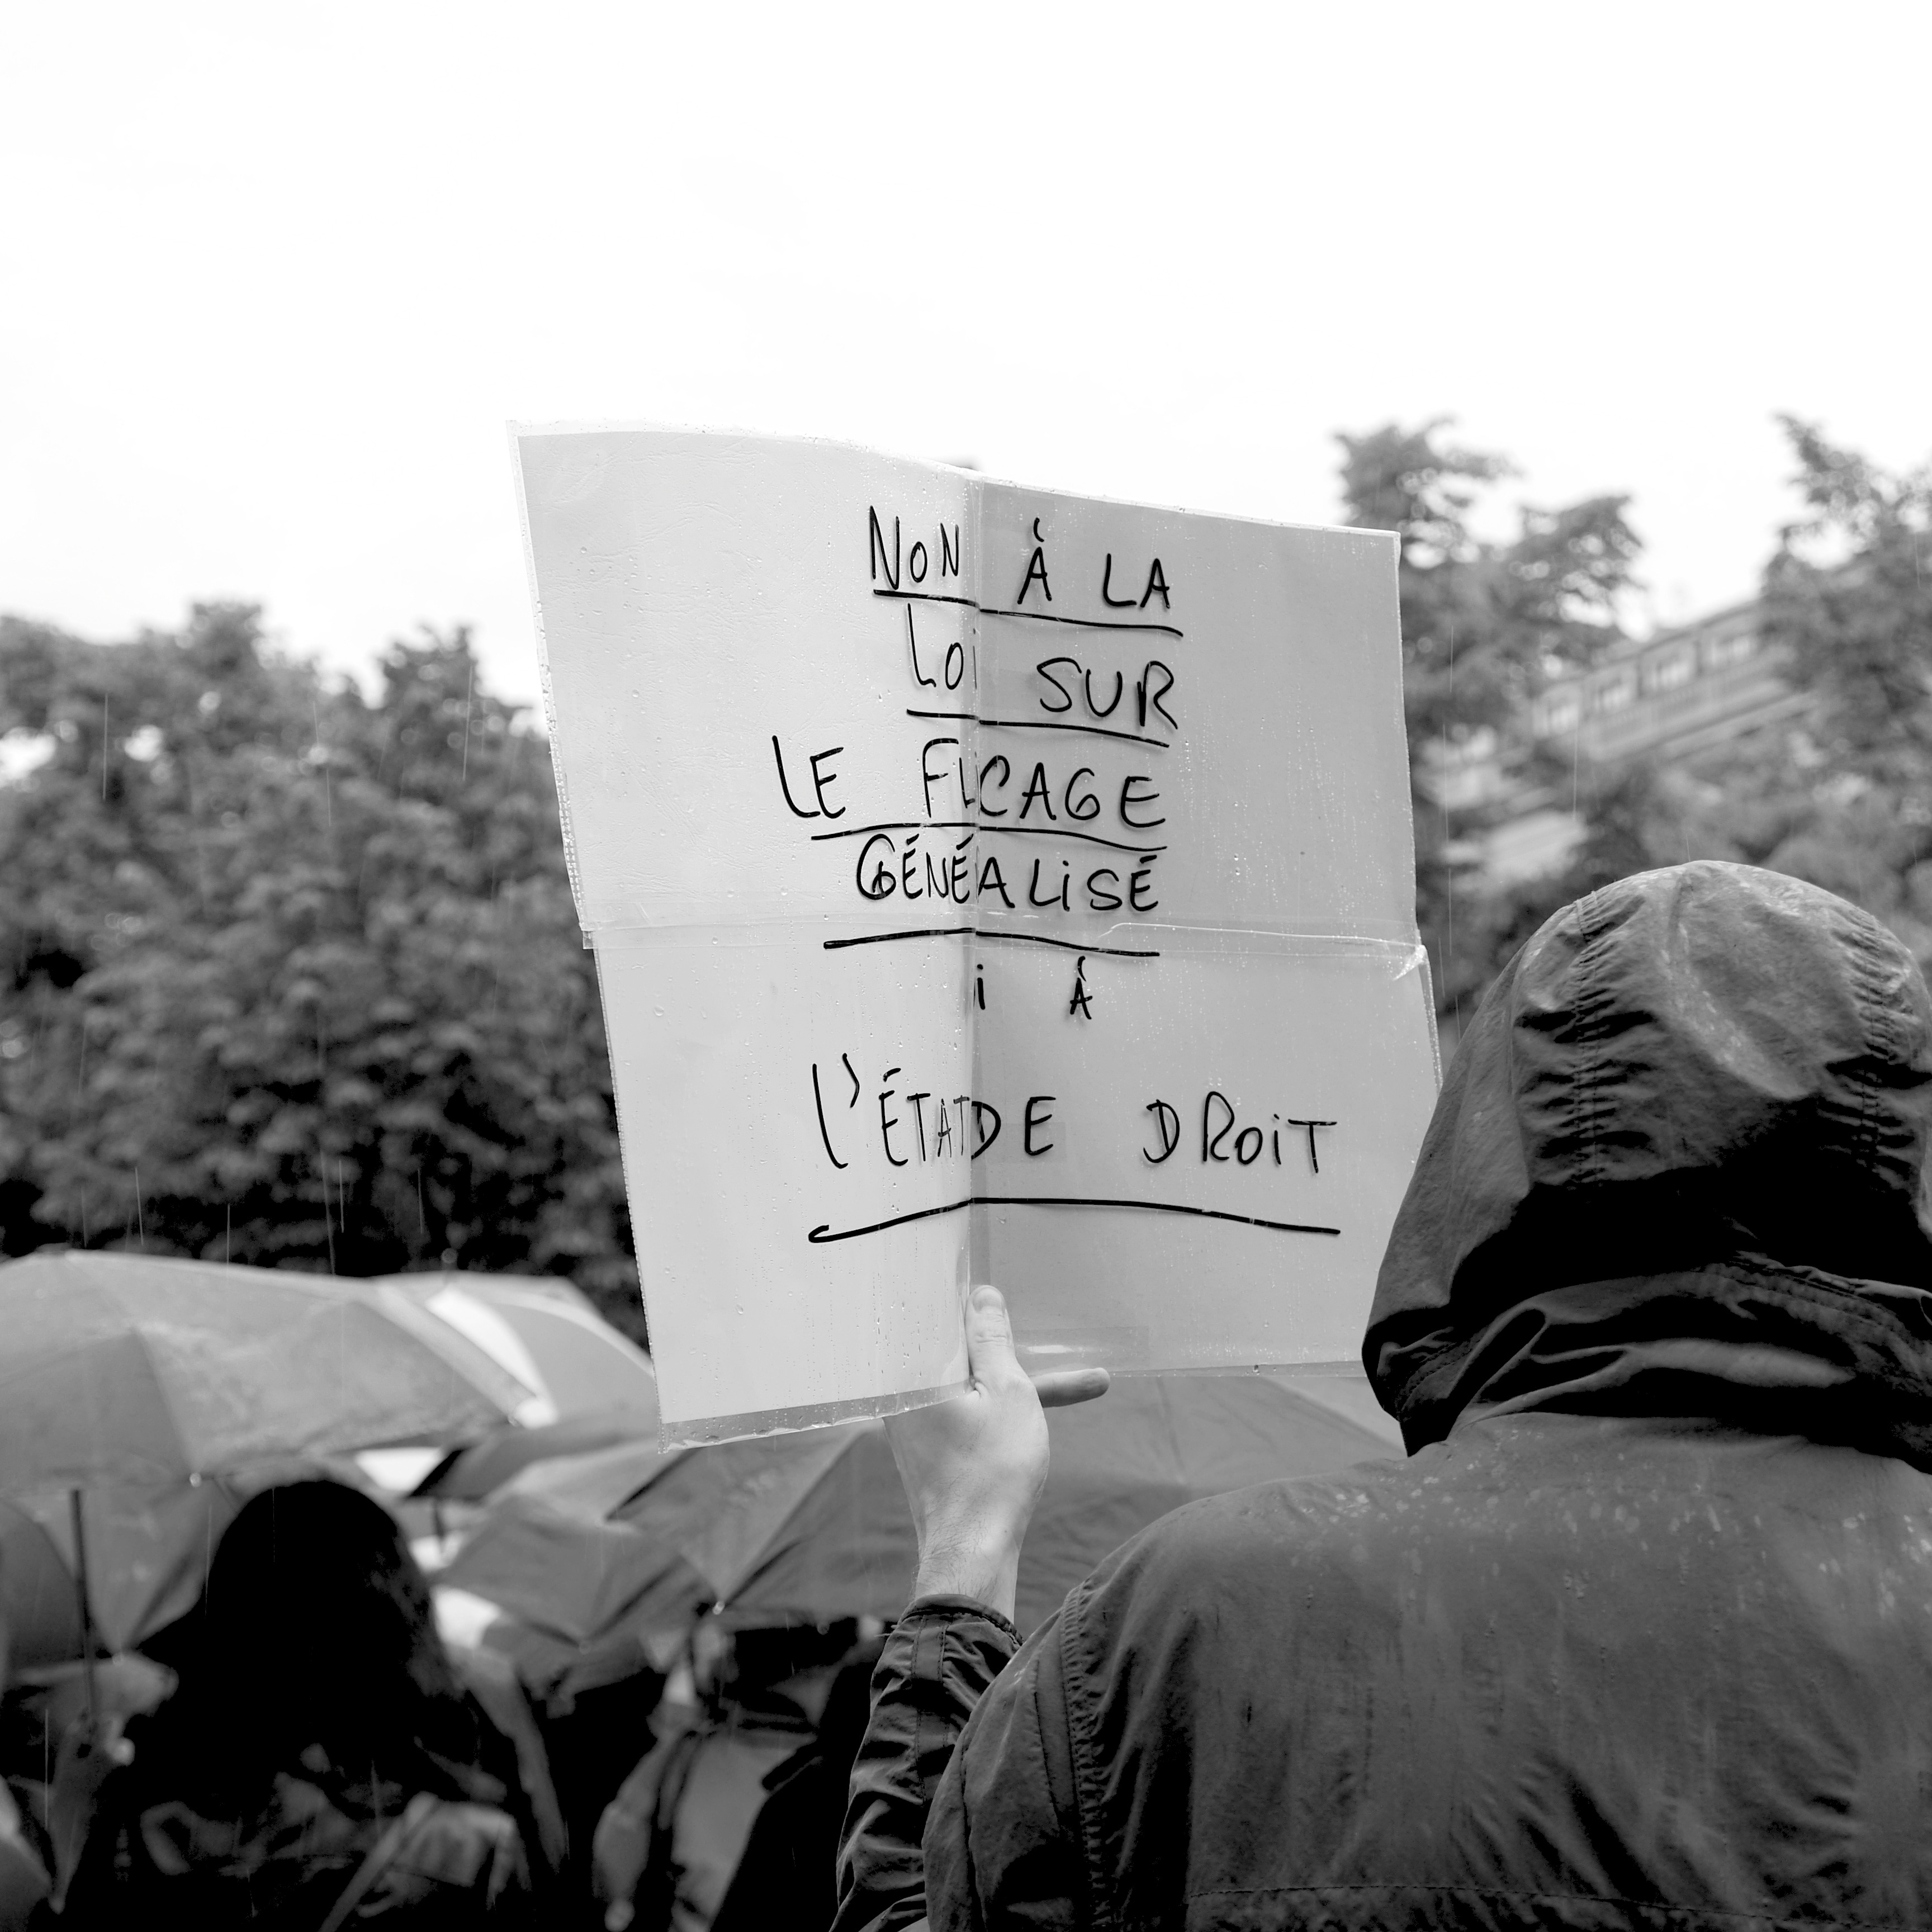 NON À LA
LOI SUR
LE FICAGE
GÉNÉALISÉ
i À
L'ÉTAT DE DROIT